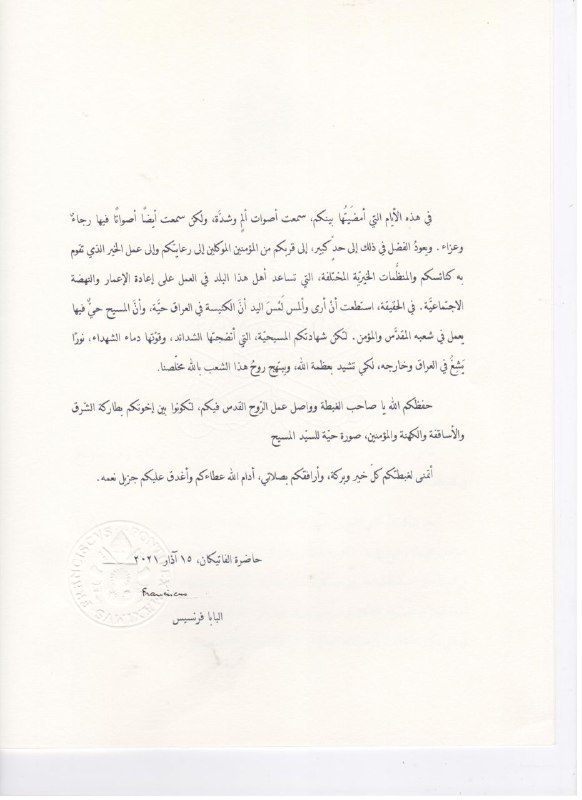 في هذه الأيام التي أمضَيتُها بينكم، سمعت أصوات ألمٍ وشدّة، ولكن سمعت أيضًا أصواتًا فيها رجاءٌ
وعزاء. ويعودُ الفضل في ذلك إلى حدّ كبير، إلى قربكم من المؤمنين الموكلين إلى رعايتكم وإلى عمل الخير الذي تقوم
به كنائسكم والمنظَّمات الخيريّة المختلفة، التي تساعد أهل هذا البلد في العمل على إعادة الإعمار والنهضة
الاجتماعيَّة. في الحقيقة، استطعت أنْ أرى وألمس لَمْسَ اليد أنَّ الكنيسة في العراق حيَّة، وأنَّ المسيح حيٌّ فيها
يعمل في شعبه المقدَّس والمؤمن. لتكن شهادتكم المسيحيّة، التي أنضجتها الشدائد، وقوّتها دماء الشهداء، نورًا
يَشِعُّ في العراق وخارجه، لكي تشيد بعظمة الله، ويبتهج روحُ هذا الشعب بالله مخلّصنا.
حفظكم الله يا صاحب الغبطة وواصل عمل الرّوح القدس فيكم، لتكونوا بين إخوتكم بطاركة الشرق
والأساقفة والكهنة والمؤمنين، صورة حيّة للسيّد المسيح
أتمنى لغبطتكم كلّ خير وبركة، وأرافقكم بصلاتي، أدام الله عطاءكم وأغدق عليكم جزيل نعمه.
حاضرة الفاتيكان، ١٥ آذار ٢٠٢١
Franciscus
البابا فرنسيس
FRANCISCUS